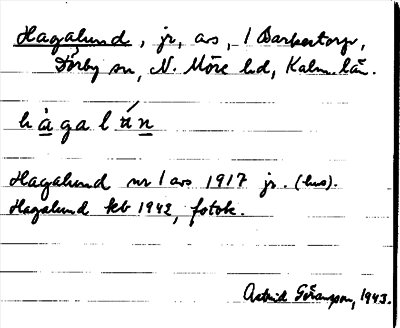 Hagalund, jr, avs, / Barkestorp,
Dörby sn, N. Möre hd, Kalm. län.
hagalun
Hagalund nr 1 avs 1917 jr. (hus).
Hagalund kb 1942, fotok.
Astrid Göransson, 1943.